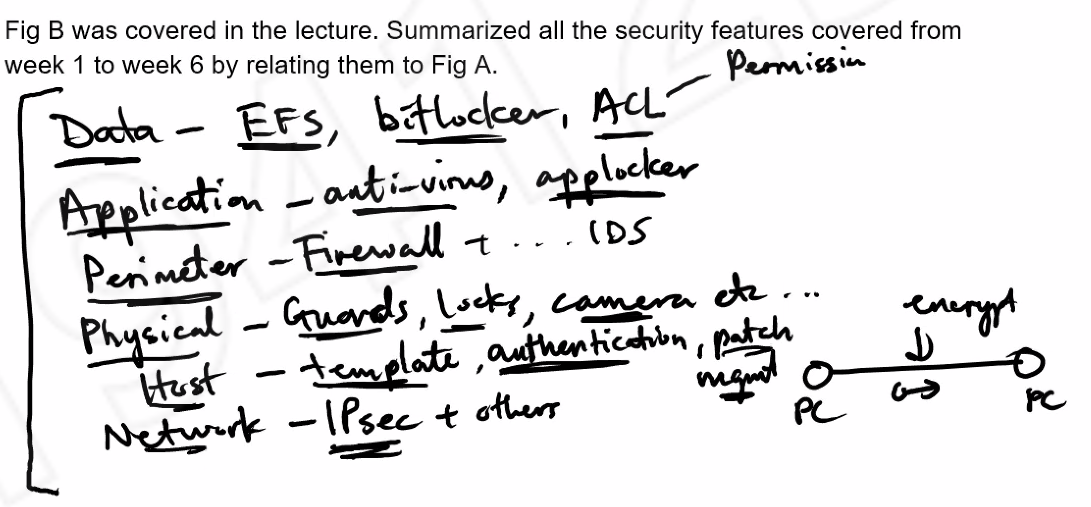 Fig B was covered in the lecture. Summarized all the security features covered from
week 1 to week 6 by relating them to Fig A.
Permission
Data - EFS, bitlocker, ACL
Application - anti-virus, applocker
Perimeter - Firewall + .... IDS
Physical - Guards, Locks, camera etc ...
Host - template, authentication, patch
mgmt
Network - IPsec + others
encrypt
PC
PC